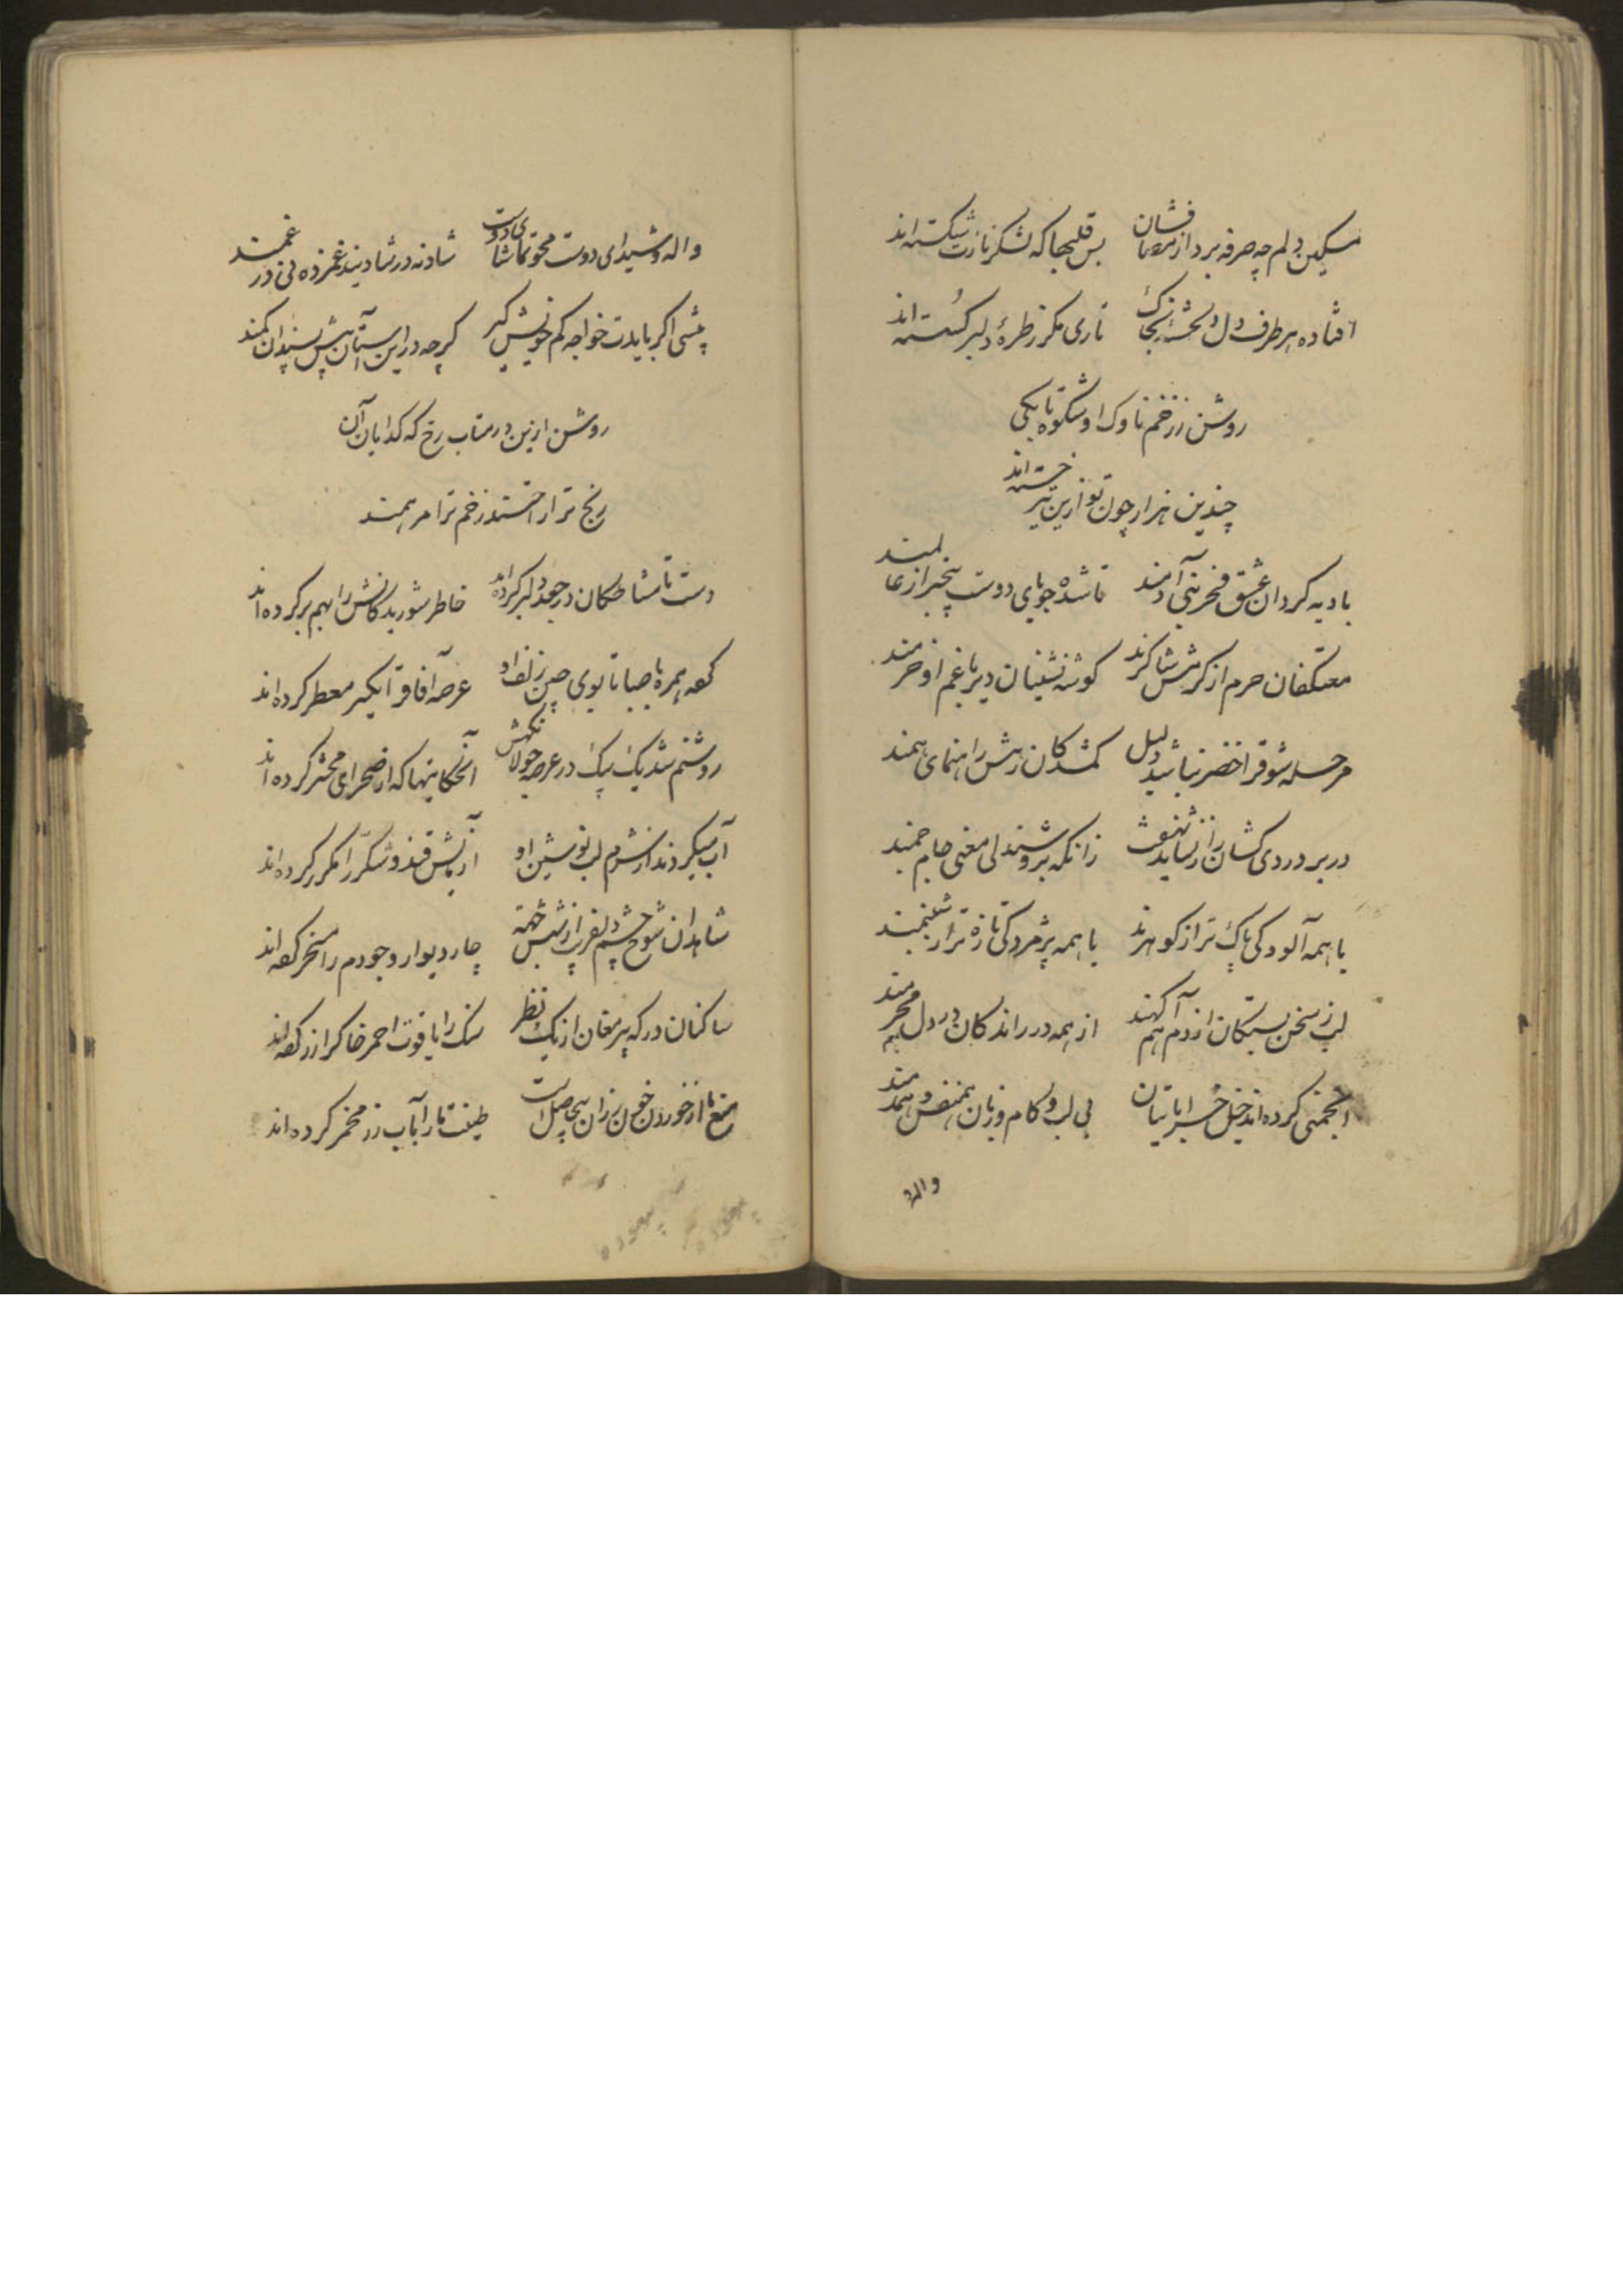 مسکین دلم چه صرفه برد از میان فشان بس قلبها که لشکر نازت شکسته‌اند
افتاده هر طرف دل دلخسته بخاک تاری مکر ز طرهٔ دلبر کسسته‌اند
روشن ز زخم ناوک او شکوه تا بکی
چندین هزار چون تو ازین تیر خسته‌اند
بادیه کردان عشق فخر بنی آدمند تا شده جویای دوست بیخبر از عالمند
معتکفان حرم از کرمش شاکرند کوشه نشینان دیر با غم او خرمند
مرحله شوقرا خضر نباشد دلیل کمشدکان رهش راهنمای همند
در بر دردی کشان راز نشاید نهفت زانکه بروشندلی مغنی جام جمند
با همه آلودکی پاک تر از کوهرند با همه پژمردکی تازه تر از شبنمند
لب ز سخن بستکان از دم هم آکهند از همه در راندکان در دل هم محرمند
انجمنی کرده‌اند خیل خراباتیان بی لب و کام و زبان همنفس و همدمند
واله
واله و شیدای دوست محو تماشای دوست شاد نه در شادیند غمزده نی در غمند
پیشی اکر بایدت خواجه کم خویش کیر کرچه در این آستان پیش پسندان کمند
روشن ازین در متاب رخ که کدایان آن
رنج ترا راحتند زخم ترا مرهمند
دست تا مشاطکان در جعد دلبر کرده‌اند خاطر شوریدکانش را بهم بر کرده‌اند
کعه همره با صبا تا بوی چین زلف او عرصه آفاقرا یکسر معطر کرده‌اند
روشنم شد یک بیک در عرصه جولانکهش آنحکایتها که از صحرای محشر کرده‌اند
آب میکردند از شرم لب نوشین او از نمش قند و شکر را مکرر کرده‌اند
شاهدان شوخ چشم دلفریب از شش جهة چار دیوار وجودم را مسخر کعه‌اند
ساکنان درکه پیر مغان از یک نظر سنک را یاقوت احمر خاکرا زر کعه‌اند
منع ما از خوردن خون رزان بیحاصل است طینت ما را بآب رز مخمر کرده‌اند